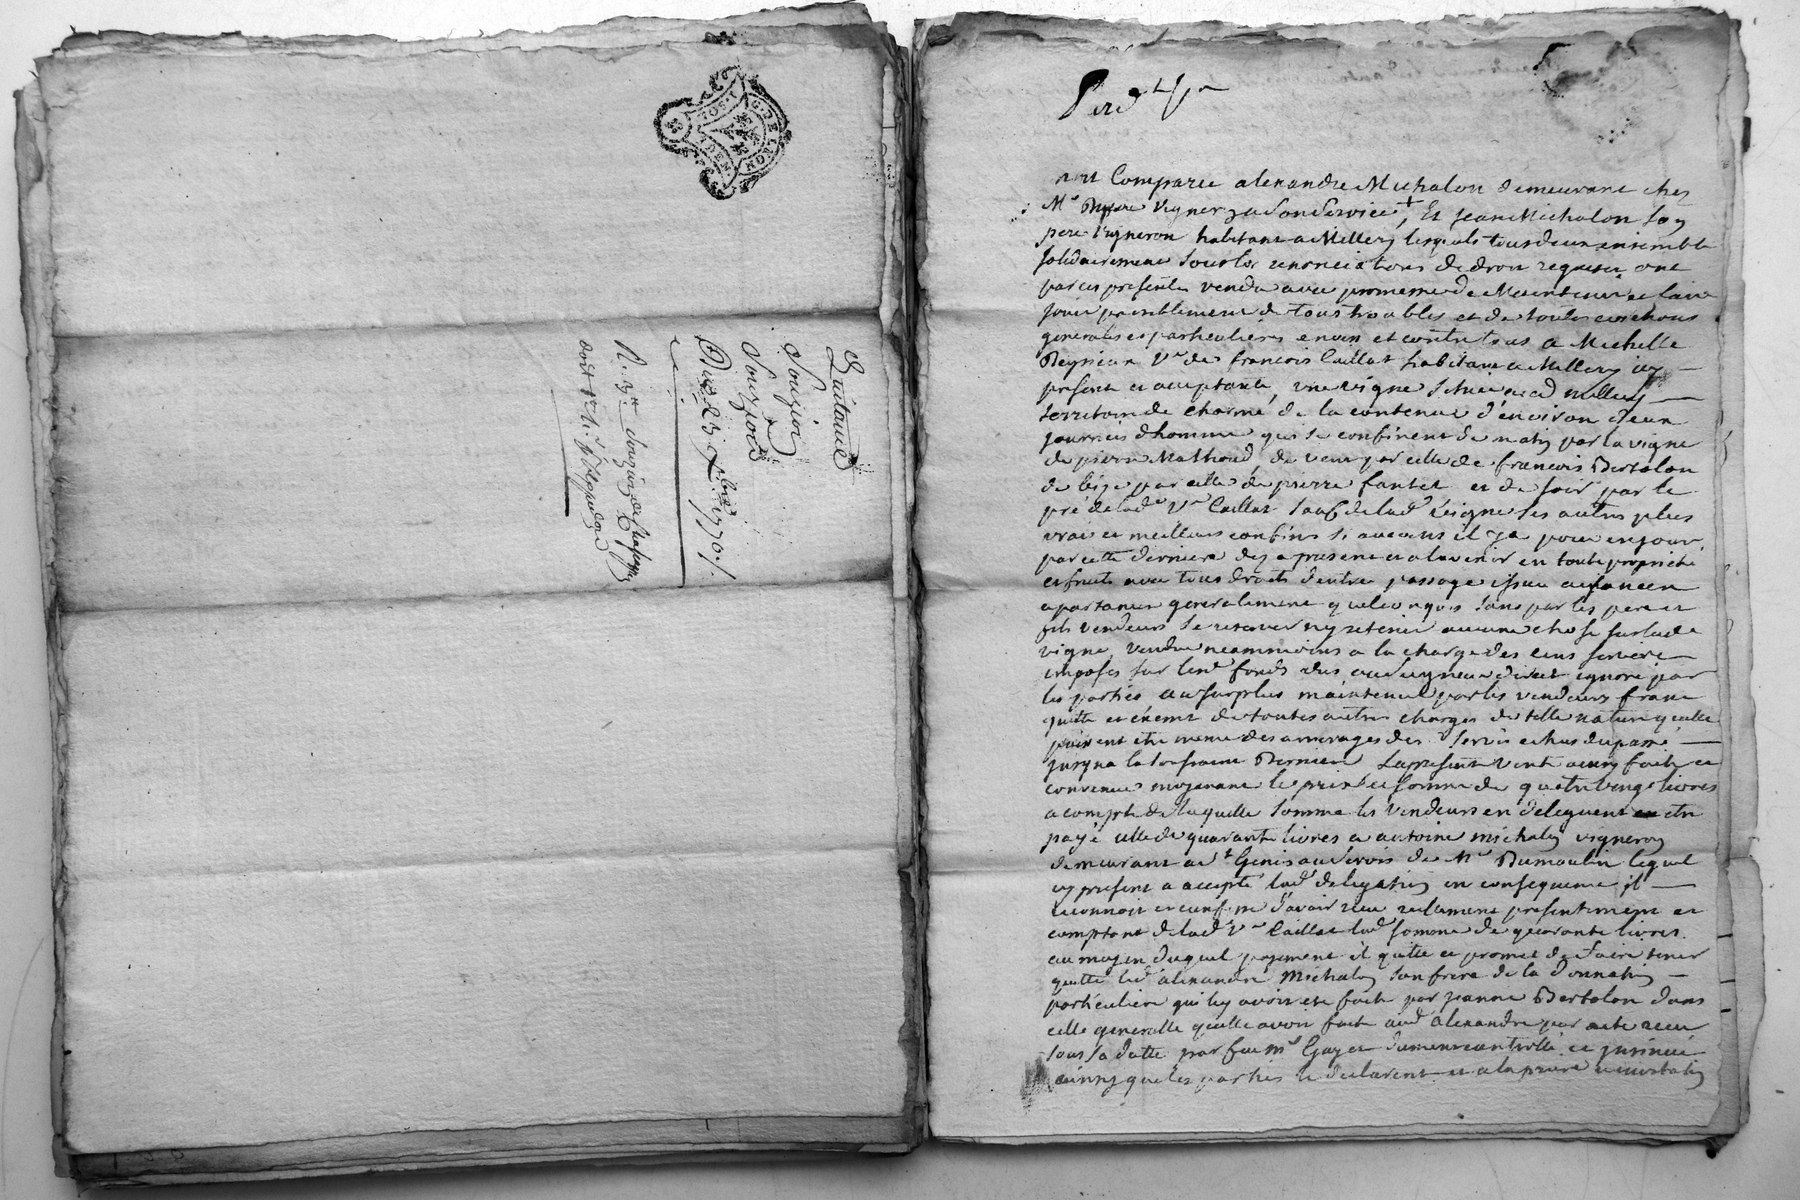 Quitance
Souzion
Souzion
Du 2 xbre 1770
G DE LYON
Sont Comparu alexandre Michalon demeurant chez
Mr vigner a son Service + Et jean Michalon son
pere vigneron habitant a Millery lesquels tous deux ensemble
solidairement sous les renonciations de droit requises ont
par ces presentes vendu avec promesse de Maintenir et faire
jouir paisiblement de tous troubles et de toutes evictions
generales et particulieres envers et contre tous a Michelle
Peyssian Ve de francois Caillat habitant a Millery icy
presente et acceptante, une vigne situee aud millery
territoire de charme, de la contenue d'environ deux
journées d'homme qui se confinent de matin par la vigne
de pierre Mathoud, de vent par celle de francois Bertolon
de bize par celle de pierre fantet et de soir par le
pré de lad Ve Caillat sauf de lad vigne ses autres plus
vrais et meilleurs confins si aucuns il y a pour en jouir
par cette derniere dez a present et a l'avenir en toute proprieté
et fruits avec tous droits d'entrée passage issue aisances
apartenances generalement quelconques sans par les pere et
fils vendeurs se reserver ny retenir aucune chose sur lad
vigne, vendue neanmoins a la charge des cens servis
imposés sur led fonds dus au seigneur direct ignoré par
les parties au surplus maintenue par les vendeurs franc
quitte et exempt de toutes autres charges de telle nature quelle
puissent etre meme des arrerages des servis echus du passé
jusqua la St martin Derniere La presente vente ainsy faite et
convenue moyenant le prix et somme de quatre vingt livres
a compte de laquelle somme les vendeurs en deleguent etre
payé celle de quarante livres a antoine michalon vigneron
demeurant a St Genis au service de Mr Dumoulin lequel
icy present a accepté lad delegation en consequence il
reconnoit et confesse d'avoir recu reelement presentement et
comptant de lad Ve Caillat lad somme de quarante livres
au moyen duquel payement il quitte et promet de faire tenir
quitte led alexandre Michalon son frere de la donnation
particuliere qui luy avoit eté faite par jeanne Bertolon dans
celle generalle quelle avoit faite aud alexandre par acte recu
sous sa datte par feu Me Gayet duement controllé et insinué
ainsy que les parties le declarent et a la priere